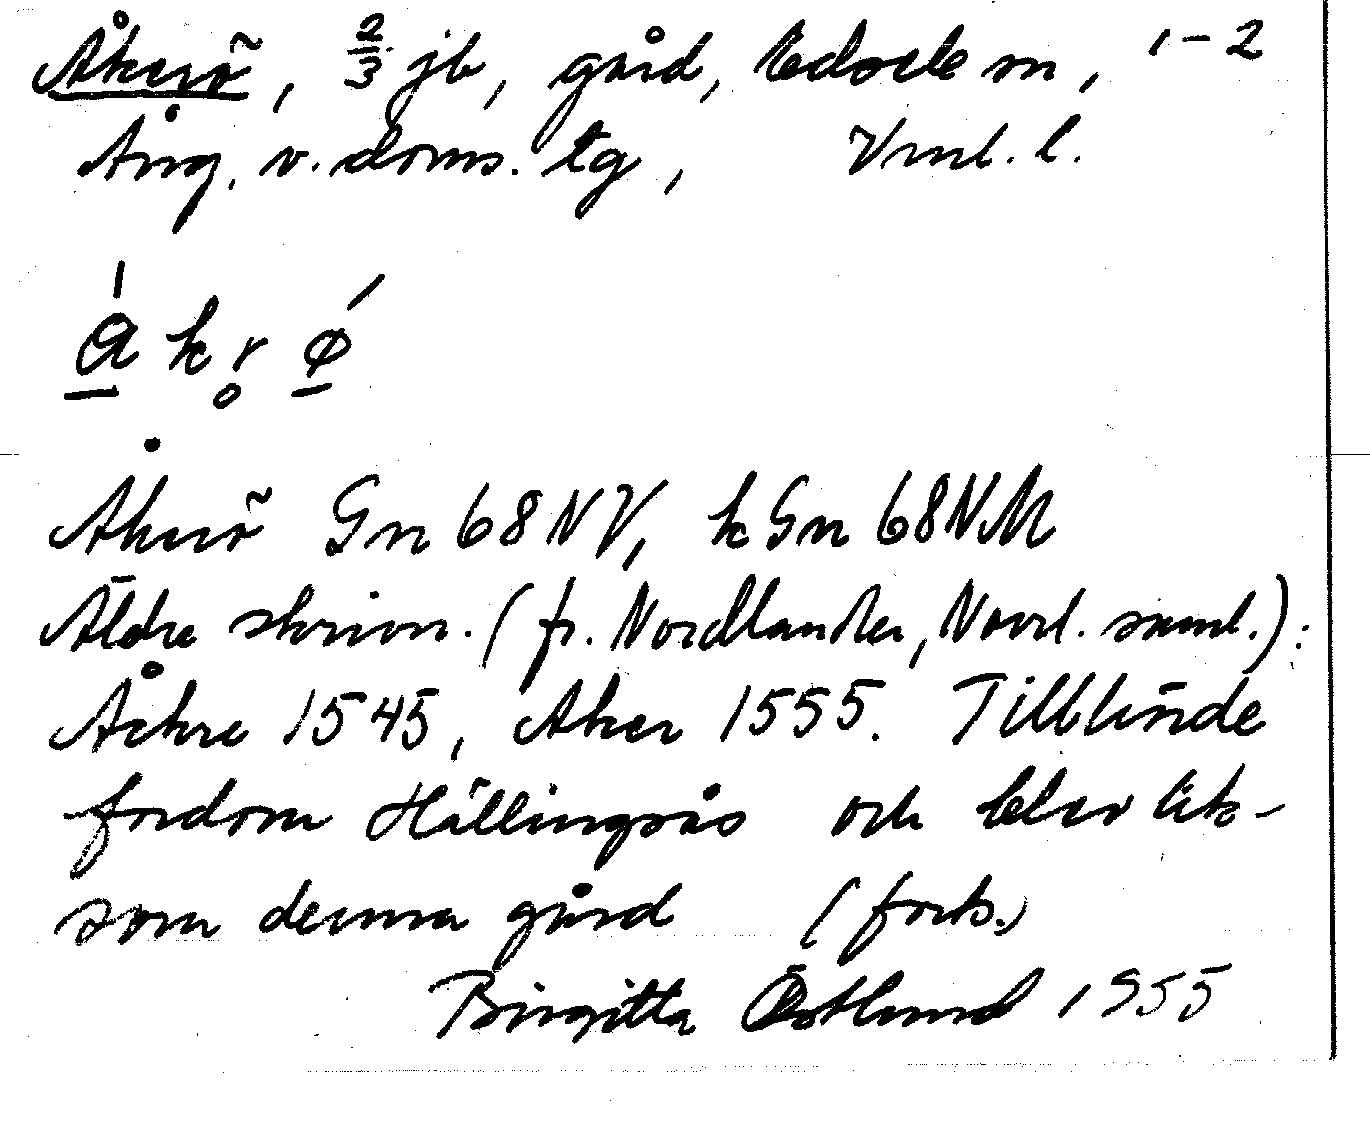 Åkerö, 2/3 jb, gård, Edsele sn, 1-2
Ång. v. doms. tg, Vnl. l.
å k r ø
Åkerö Gn 68 NV, k Gn 68 NM
Äldre skrivn. (fr. Nordlander, Norrl. saml.):
Åckre 1545, Aker 1555. Tillhörde
fordom Hällingsås och blev lik-
som denna gård (forts.)
Birgitta Östlund 1955